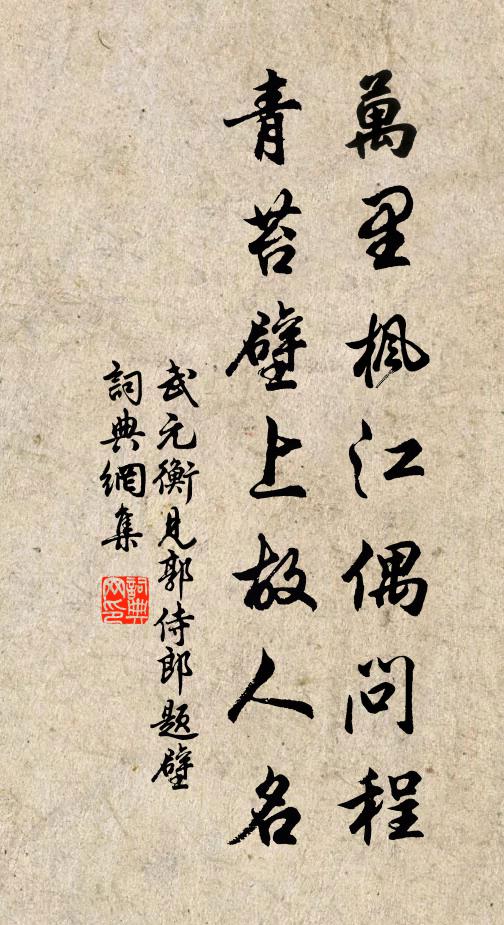 萬里楓江偶問程
青苔壁上故人名
武元衡見郭侍郎題壁
詞典網集
詞典
网印